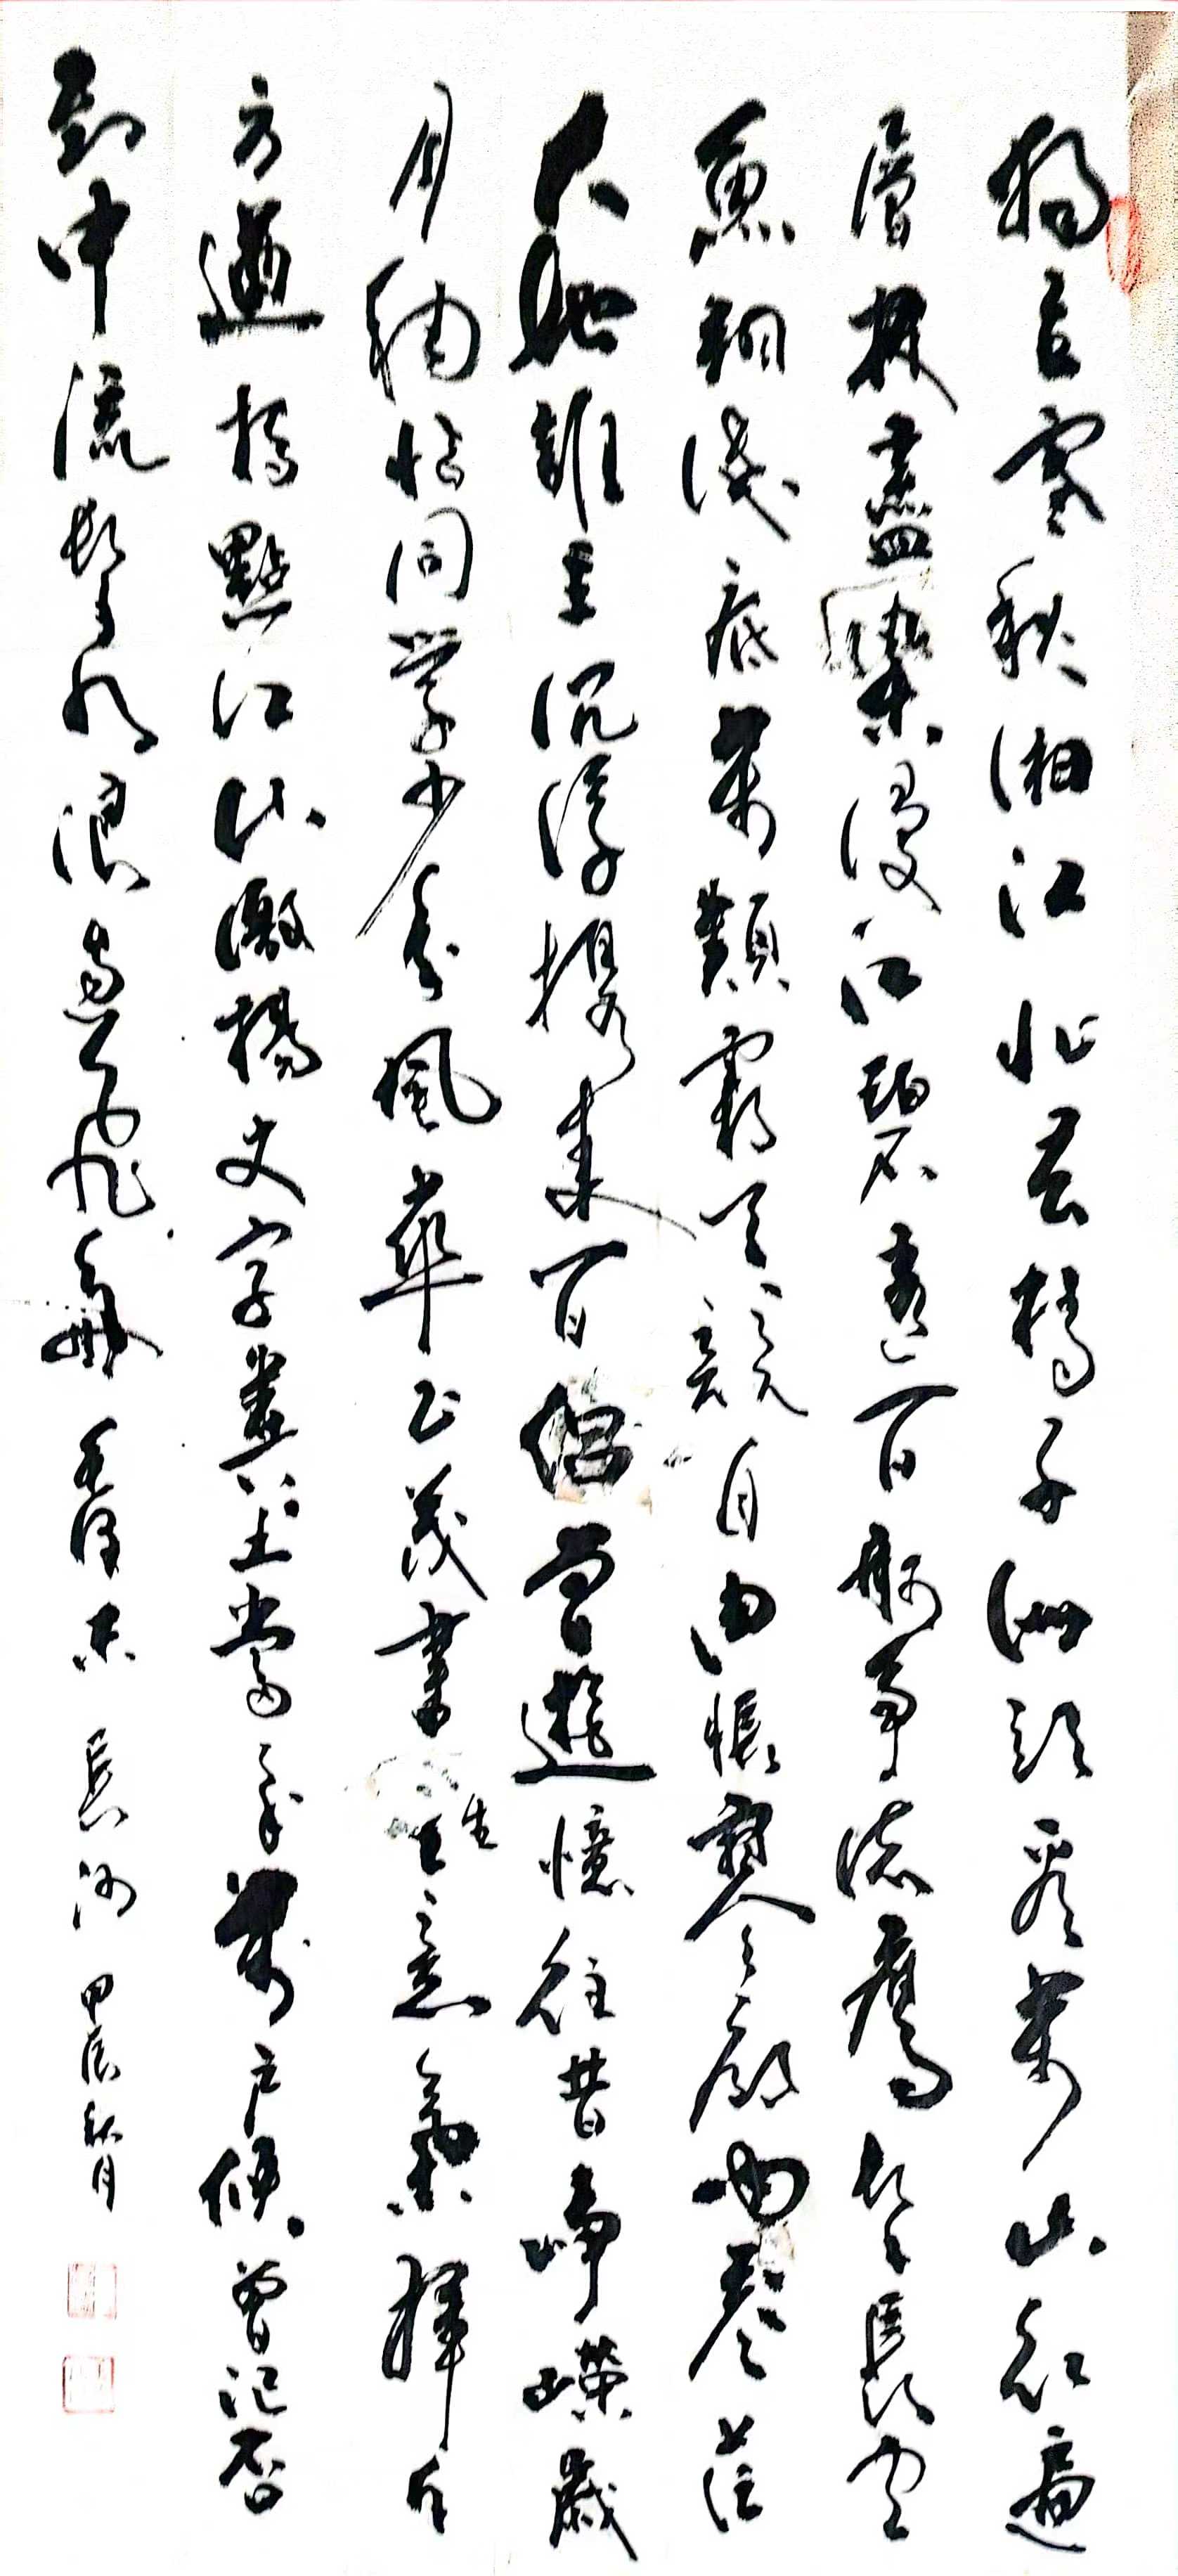 獨立寒秋湘江北去橘子洲頭看萬山紅遍
層林盡染漫江碧透百舸爭流鷹擊長空
魚翔淺底萬類霜天競自由悵寥廓問蒼茫
大地誰主沉浮攜來百侶曾遊憶往昔崢嶸歲
月稠恰同学少年風華正茂書生意氣揮斥
方遒指點江山激揚文字糞土當年萬戶侯曾記否
到中流擊水浪遏飛舟 毛澤東 長沙 甲辰秋月